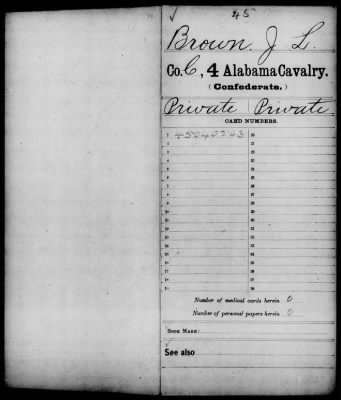 45
Brown, J. L.
Co. C, 4 Alabama Cavalry.
(Confederate.)
Private Private
CARD NUMBERS.
1 45040203 20
2 21
3 22
4 23
5 24
6 25
7 26
8 27
9 28
10 29
11 30
12 31
13 32
14 33
15 34
16 35
17 36
18 37
19 38
Number of medical cards herein 0
Number of personal papers herein 0
BOOK MARK:
See also